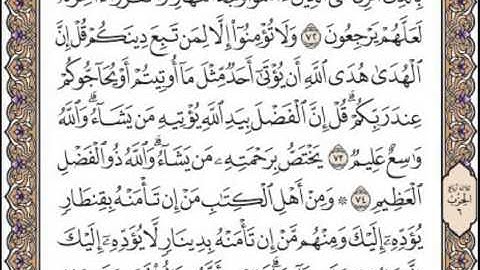 لَعَلَّهُمْ يَرْجِعُونَ ٧٢ وَلَا تُؤْمِنُوٓا۟ إِلَّا لِمَن تَبِعَ دِينَكُمْ قُلْ إِنَّ
ٱلْهُدَىٰ هُدَى ٱللَّهِ أَن يُؤْتَىٰٓ أَحَدٌ مِّثْلَ مَآ أُوتِيتُمْ أَوْ يُحَآجُّوكُمْ
عِندَ رَبِّكُمْ ۗ قُلْ إِنَّ ٱلْفَضْلَ بِيَدِ ٱللَّهِ يُؤْتِيهِ مَن يَشَآءُ ۗ وَٱللَّهُ
وَٰسِعٌ عَلِيمٌ ٧٣ يَخْتَصُّ بِرَحْمَتِهِۦ مَن يَشَآءُ ۗ وَٱللَّهُ ذُو ٱلْفَضْلِ
ٱلْعَظِيمِ ٧٤ ۞ وَمِنْ أَهْلِ ٱلْكِتَٰبِ مَنْ إِن تَأْمَنْهُ بِقِنطَارٍ
يُؤَدِّهِۦٓ إِلَيْكَ وَمِنْهُم مَّنْ إِن تَأْمَنْهُ بِدِينَارٍ لَّا يُؤَدِّهِۦٓ إِلَيْكَ
الحزب
٦